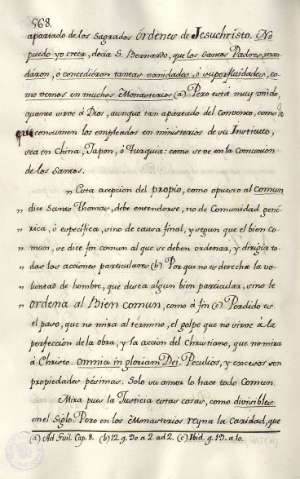 568.
apartado de los Sagrados órdenes de Jesuchristo. No
puedo yo creer, decia S. Bernardo, que los Santos Padres man-
dáron, ó concediéron tantas vanidades, ó superfluidades, co-
mo vemos en muchos Monasterios (a). Pero está muy unido
quanto vive á Dios, aunque tan apartado del convento, como
que consumen los empleados en ministerios de su Instituto,
sea en China, Japon, ó Turquia: como se ve en la Comunion
de los Santos.
„ Esta acepcion del propio, como opuesto al comun
dice Santo Thomas, debe entenderse, no de Comunidad gené-
rica, ó especifica, sino de causa final, y segun que el bien co-
mun, se dice fin comun al que se deben ordenar, y dirigir to-
das las acciones particulares (b). Por que no es derecha la vo-
luntad de hombre, que desea algun bien particular, sino le
ordena al Bien comun, como á fin (c). Perdido es
el paso, que no mira al término, el golpe que no vá á la
perfeccion de la obra, y la accion del Christiano, que no mira
á Christo. omnia in gloriam Dei. Peculios, y excesos son
propiedades pésimas. Solo un amor lo hace todo Comun.
Mira pues la Justicia estas cosas, como divisibles
en el Siglo. Pero en los Monasterios reyna la caridad, que
(a) Ad Guil. Cap. 8. (b) 12. q. 90 a. 2. ad 2. (c) Ibid. q. 19. a. 10.